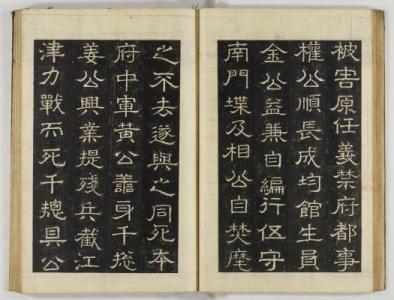 被害原任義禁府都事
權公順長成均館生員
金公益兼自編行伍守
南門堞及相公自焚麾
之不去遂與之同死本
府中軍黃公善身千摠
姜公興業提殘兵截江
津力戰而死千摠具公